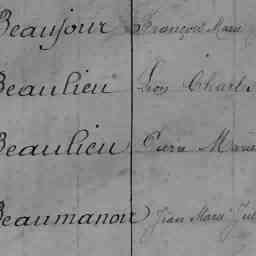 Beaujour François Marie
Beaulieu Léon Charles
Beaulieu Pierre Marie
Beaumanoir Jean Marie Jul